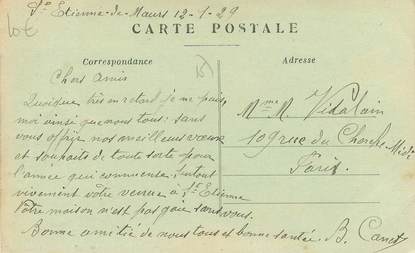 St Etienne-de-Maurs 12-1-29
10€
CARTE POSTALE
Correspondance
Adresse
Chers Amis
Quoique très en retard je ne puis,
moi ainsi que nous tous: sans
vous offrir nos meilleurs vœux
et souhaits de toute sorte pour
l'année qui commence. Surtout
vivement votre venue à St-Etienne
Votre maison n'est pas gaie sans vous.
Bonne amitié de nous tous et bonne santée. B.
Mme M. Vidalain
109 rue du Cherche Midi
Paris.